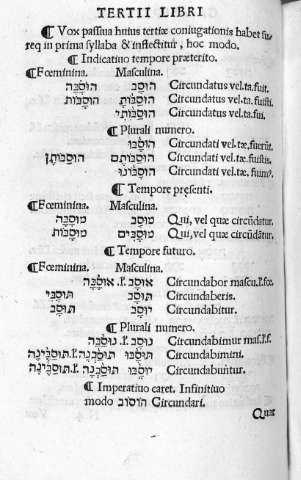 TERTII LIBRI
¶ Vox passiua huius tertiæ coniugationis habet su
req in prima syllaba & inflectitur, hoc modo.
¶ Indicatiuo tempore præterito.
¶Fœminina. Masculina.
הוּסַבָּה הוּסַב Circundatus vel.ta.fuit.
הוּסַבּוֹת הוּסַבּוֹתָ Circundatus vel.ta.fuisti.
הוּסַבּוֹתִי Circundatus vel.ta.fui.
¶ Plurali numero.
הוּסַבּוּ Circundati vel.tæ,fuerūt.
הוּסַבּוֹתֶן הוּסַבּוֹתֶם Circundati vel.tæ fuistis.
הוּסַבּוֹנוּ Circundati vel.tæ,fuim⁹.
¶ Tempore pręsenti.
¶Fœminina. Masculina.
מוּסַבָּה מוּסַב Qui, vel quæ circūdatur.
מוּסַבּוֹת מוּסַבִּים Qui,vel quæ circūdātur.
¶ Tempore futuro.
¶Fœminina. Masculina.
אוּסַב .ł. אוּסַבָּה Circundabor mascu.ł.fœ.
תּוּסַבִּי תּוּסַב Circundaberis.
תּוּסַב יוּסַב Circundabitur.
¶ Plurali numero.
נוּסַב .ł. נוּסַבָּה Circundabimur mas.ł.f.
תּוּסַבְנָה .ł. תּוּסַבֶּינָה תּוּסַבּוּ Circundabimini.
תּוּסַבְנָה .ł. תּוּסַבֶּינָה יוּסַבּוּ Circundabūntur.
¶ Imperatiuo caret. Infinitiuo
modo הוּסוֹב Circundari.
Quæ